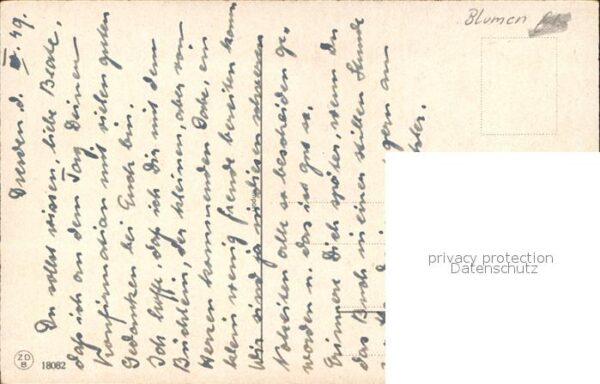 Blumen
Dresden d. IV. 49.
Du sollst wissen, liebe Beate,
daß ich an dem Tag Deiner
Konfirmation mit vielen guten
Gedanken bei Euch bin.
Ich hoffe, daß ich Dir mit dem
Büchlein, der kleinen, aber von
Herzen kommenden Gabe, ein
klein wenig Freude bereiten kann
Wir sind ja in diesen schweren
Notzeiten alle so bescheiden ge-
worden u. das ist gut so.
Erinnere Dich später, wenn Du
das Buch in einer stillen Stunde
gern an
privacy protection
Datenschutz
ZD
8
18082